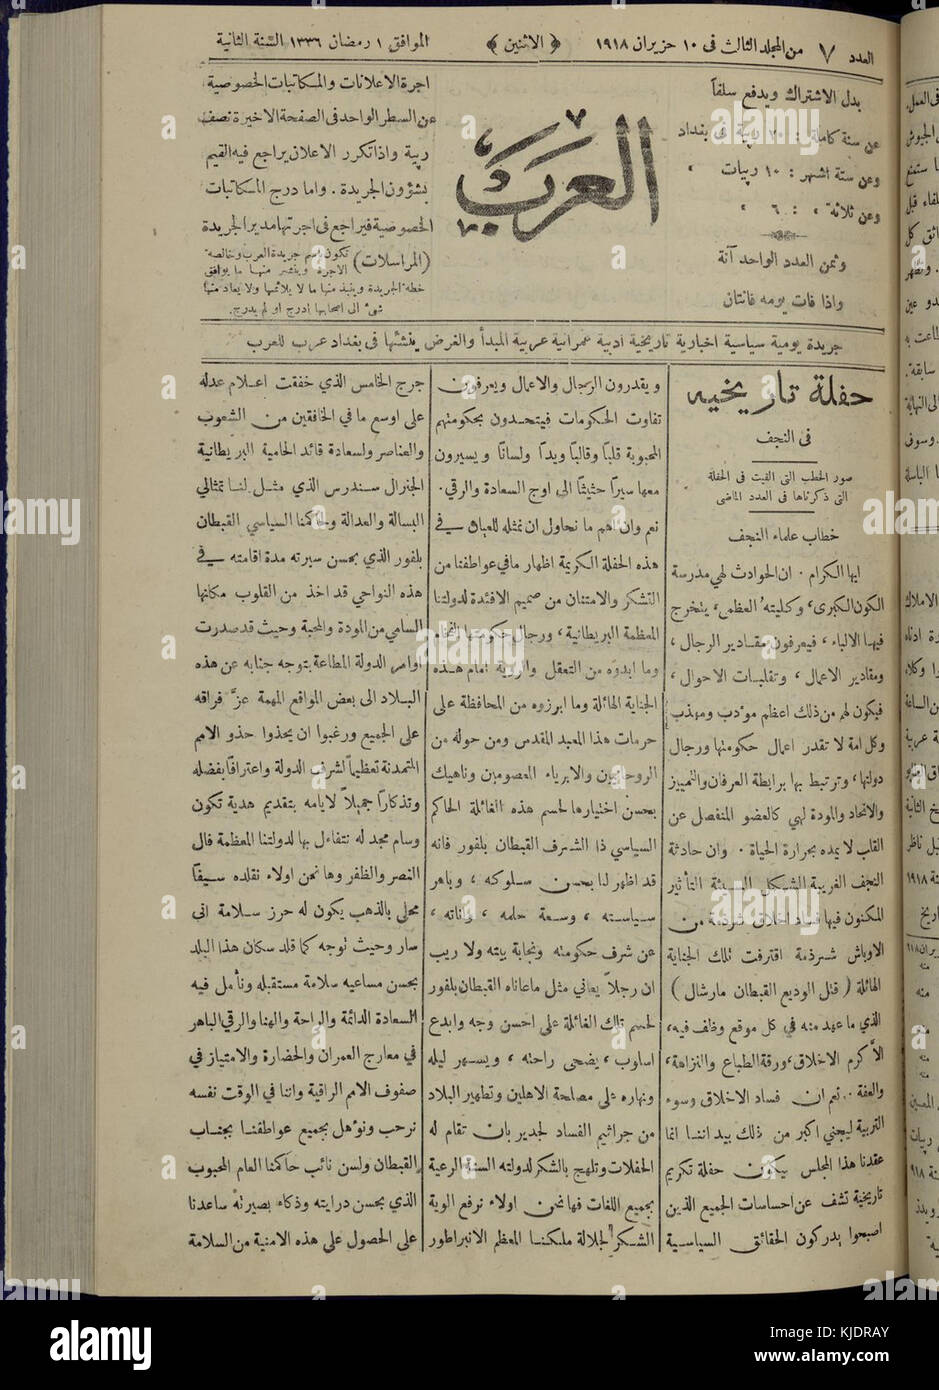 العدد ٧ من المجلد الثالث فى ١٠ حزيران ١٩١٨
﴿ الاثنين ﴾
الموافق ١ رمضان ١٣٣٦ السنة الثانية
بدل الاشتراك ويدفع سلفاً
عن سنة كاملة : ٢٠ ربية فى بغداد
وعن ستة اشهر : ١٠ ربيات »
وعن ثلاثة » : ٦ »
وثمن العدد الواحد آنة
واذا فات يومه فانتان
العرب
اجرة الاعلانات والمكاتبات الخصوصية
عن السطر الواحد فى الصفحة الاخيرة نصف
ربية واذا تكرر الاعلان يراجع فيه القيم
بشؤون الجريدة . واما درج المكاتبات
الخصوصية فيراجع فى اجرتها مدير الجريدة
(المراسلات) تكون باسم جريدة العرب وخالصة
الاجرة وينشر منها ما يوافق
خطة الجريدة وينبذ منها ما لا يلائمها ولا يعاد منها
شئ الى اصحابها ادرج او لم يدرج.
جريدة يومية سياسية اخبارية تاريخية ادبية عمرانية عربية المبدأ والغرض ينشئها فى بغداد عرب للعرب
حفلة تاريخيه
فى النجف
صور الخطب التى القيت فى الحفلة
التى ذكرناها فى العدد الماضى
خطاب علماء النجف
ايها الكرام . ان الحوادث لهي مدرسة
الكون الكبرى، وكليته العظمى، يتخرج
فيها الالباء ، فيعرفون مقادير الرجال ،
ومقادير الاعمال ، وتقلبات الاحوال ،
فيكون لهم من ذلك اعظم مؤدب ومهذب
وكل امة لا تقدر اعمال حكومتها ورجال
دولتها، وترتبط بها برابطة العرفان والتمييز
والاتحاد والمودة لهي كالعضو المنفصل عن
القلب لا يمده بحرارة الحياة . وان حادثة
النجف الغريبة الشكل السيئة التأثير
المكنون فيها فساد اخلاق شرذمة من
الاوباش شرذمة اقترفت تلك الجناية
الهائلة ( قتل الوديع القبطان مارشال )
الذي ما عهد منه في كل موقع وظف فيه،
الاّ كرم الاخلاق، ورقة الطباع والنزاهة،
والعفة .. نعم ان فساد الاخلاق وسوء
التربية ليجني اكبر من ذلك بيد اننا انما
عقدنا هذا المجلس ليكون حفلة تكريم
تاريخية تشف عن احساسات الجميع الذين
اصبحوا يدركون الحقائق السياسية
ويقدرون الرجال والاعمال ويعرفون
تفاوت الحكومات فيتحدون بحكومتهم
المحبوبة قلباً وقالباً ويداً ولساناً ويسيرون
معها سيراً حثيثاً الى اوج السعادة والرقي.
نعم وان اهم ما نحاول ان نمثله للعيان في
هذه الحفلة الكريمة اظهار ما في عواطفنا من
التشكر والامتنان من صميم الافئدة لدولتنا
المعظمة البريطانية ، ورجال حكومتها
وما ابدوه من التعقل والروية امام هذه
الجناية الهائلة وما ابرزوه من المحافظة على
حرمات هذا المعبد المقدس ومن حوله من
الروحانيون والابرياء المعصومين وناهيك
بحسن اختيارها لحسم هذه الغائلة الحاكم
السياسي ذا الشرف القبطان بلفور فانه
قد اظهر لنا بحسن سلوكه ، وباهر
سياسته ، وسعة حلمه ، واناته ،
عن شرف حكومته ونجابة بيته ولا ريب
ان رجلاً يعاني مثل ما عاناه القبطان بلفور
لحسم تلك الغائلة على احسن وجه وابدع
اسلوب ، يضحى راحته ، ويسهر ليله
ونهاره على مصلحة الاهلين وتطهير البلاد
من جراثيم الفساد لجدير بان تقام له
الحفلات وتلهج بالشكر لدولته السنة الرعية
بجميع اللغات فها نحن اولاء نرفع الوية
الشكر لجلالة ملكنا المعظم الانبراطور
جرج الخامس الذي خفقت اعلام عدله
على اوسع ما في الخافقين من الشعوب
والعناصر ولسعادة قائد الحامية البريطانية
الجنرال سندرس الذي مثل لنا تمثالي
البسالة والعدالة ولحاكمنا السياسي القبطان
بلفور الذي بحسن سيرته مدة اقامته في
هذه النواحي قد اخذ من القلوب مكانها
السامي من المودة والمحبة وحيث قد صدرت
اوامر الدولة المطاعة بتوجه جنابه عن هذه
البلاد الى بعض المواقع المهمة عزَّ فراقه
على الجميع ورغبوا ان يحذوا حذو الامم
المتمدنة تعظيماً لشرف الدولة واعترافاً بفضله
وتذكاراً جميلاً لايامه بتقديم هدية تكون
وسام مجد له نتفاءل بها لدولتنا المعظمة فال
النصر والظفر وها نحن اولاء نقلده سيفاً
محلى بالذهب يكون له حرز سلامة انى
سار وحيث توجه كما قلد سكان هذا البلد
بحسن مساعيه سلامة مستقبله ونأمل فيه
السعادة الدائمة والراحة والهنا والرقي الباهر
في معارج العمران والحضارة والامتياز في
صفوف الامم الراقية واننا في الوقت نفسه
نرحب ونؤهل بجميع عواطفنا بجناب
القبطان ولسن نائب حاكمنا العام المحبوب
الذي بحسن درايته وذكاء بصيرته ساعدنا
على الحصول على هذه الامنية من السلامة
alamy
alamy stock photo
KJDRAY
www.alamy.com